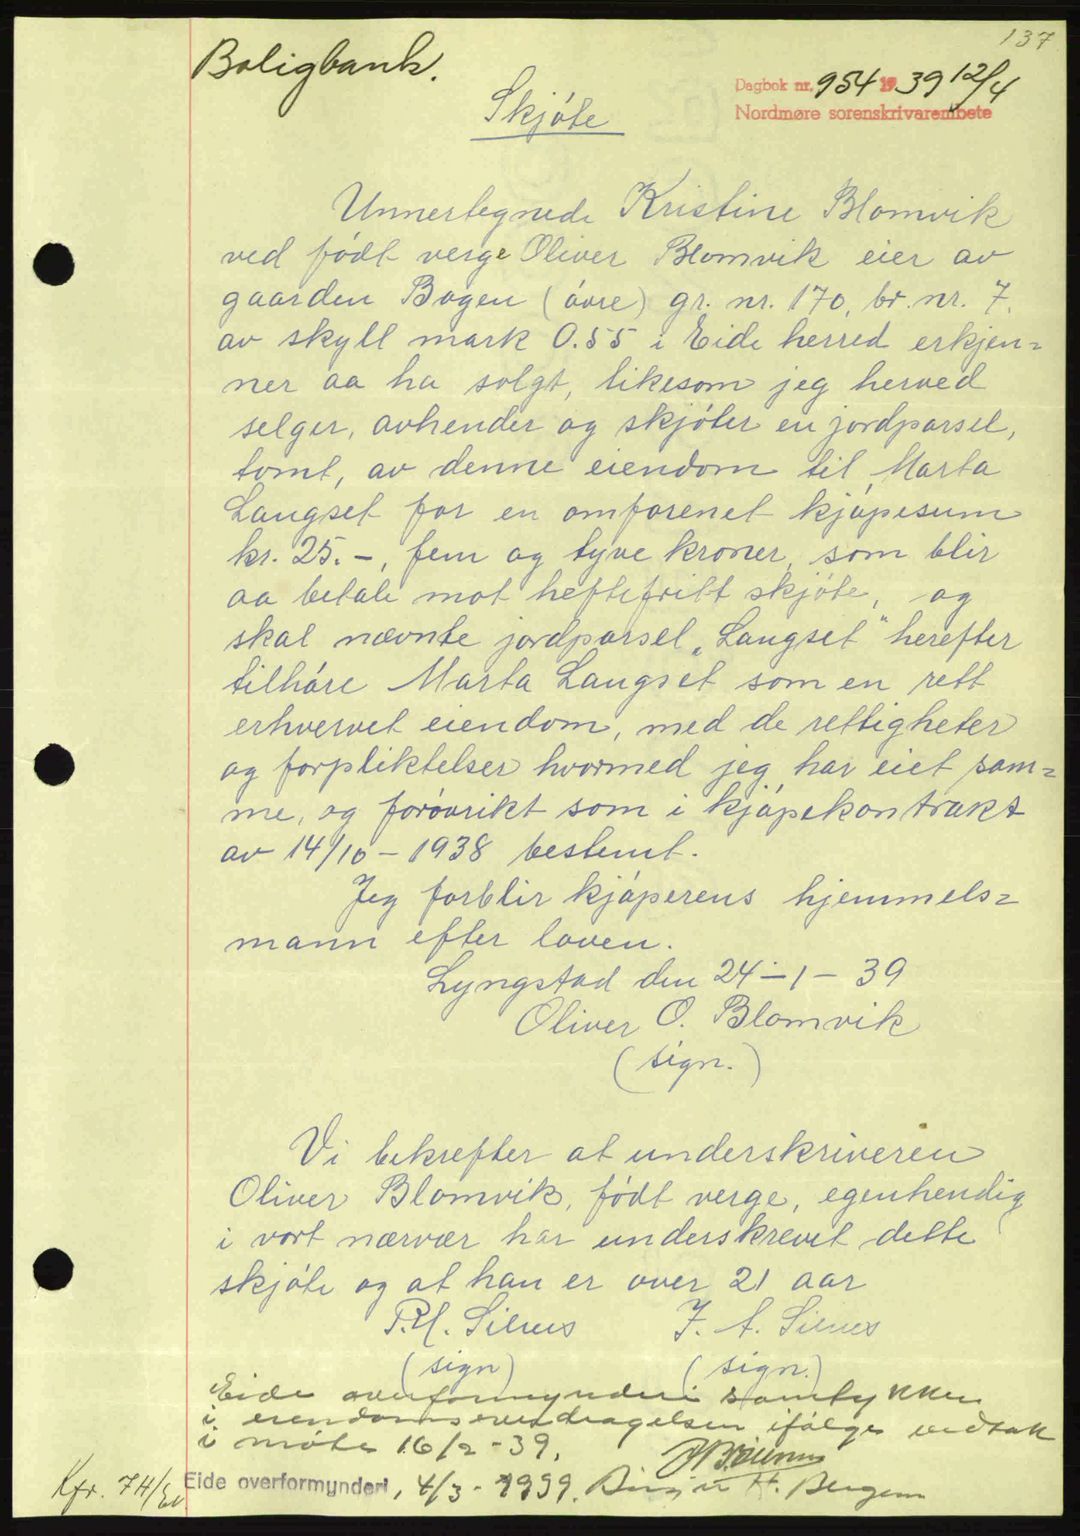 137
Boligbank.
Dagbok nr. 954 1939 12/4
Nordmøre sorenskrivarembete
Skjóte
Unnertegnede Kristine Blomvik
ved födt verge Oliver Blomvik eier av
gaarden Bogen (óvre) gr. nr. 170, br. nr. 7.
av skyll mark 0.55 i Eide herred erkjen=
ner aa ha solgt, likesom jeg herved
selger, avhender og skjóter en jordparsel,
tomt, av denne eiendom til Marta
Langset for en omforenet kjópesum
kr. 25.-, fem og tyve kroner, som blir
aa betale mot heftefritt skjóte, og
skal nævnte jordparsel „Langset" herefter
tilhóre Marta Langset som en rett
erhvervet eiendom, med de rettigheter
og forpliktelser hvormed jeg har eiet sam=
me, og foróvrikt som i kjópekontrakt
av 14/10 - 1938 bestemt.
Jeg forblir kjóperens hjemmels=
mann efter loven.
Lyngstad den 24 - 1 - 39
Oliver O. Blomvik
(sign.)
Vi bekrefter at underskriveren
Oliver Blomvik, födt verge, egenhendig
i vort nærvær har underskrevet dette
skjóte og at han er over 21 aar
P.M. Silnes J. A. Silnes
(sign) (sign.)
Eide overformynderi samtykker
i eiendomsoverdragelsen ifólge vedtak
i móte 16/2 - 39.
Eide overformynderi, 4/3 - 1939. Birger H. Bergem
Kfr. 74/